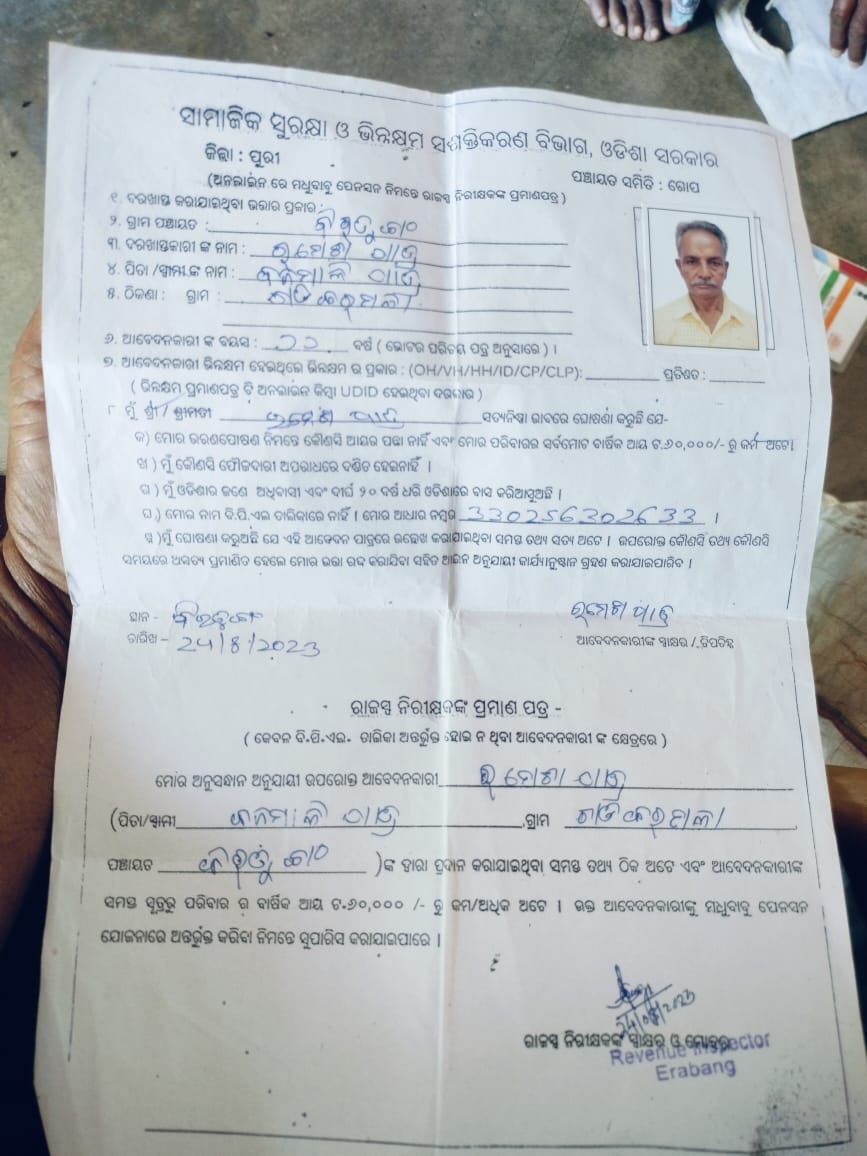 ସାମାଜିକ ସୁରକ୍ଷା ଓ ଭିନ୍ନକ୍ଷମ ସଶକ୍ତିକରଣ ବିଭାଗ, ଓଡିଶା ସରକାର
ଜିଲା : ପୁରୀ
ପଞ୍ଚାୟତ ସମିତି : ଗୋପ
(ଅନଲାଇନ ରେ ମଧୁବାବୁ ପେନସନ ନିମନ୍ତେ ରାଜସ୍ୱ ନିରୀକ୍ଷକଙ୍କ ପ୍ରମାଣପତ୍ର)
୧. ଦରଖାସ୍ତ କରାଯାଇଥିବା ଭତ୍ତାର ପ୍ରକାର :
୨. ଗ୍ରାମ ପଞ୍ଚାୟତ :
୩. ଦରଖାସ୍ତକାରୀ ଙ୍କ ନାମ : ରମେଶ ପାତ୍ର
୪. ପିତା /ସ୍ୱାମୀ.ଙ୍କ ନାମ : ବନମାଳି ପାତ୍ର
୫. ଠିକଣା : ଗ୍ରାମ :
୬. ଆବେଦନକାରୀ ଙ୍କ ବୟସ : ବର୍ଷ ( ଭୋଟର ପରିଚୟ ପତ୍ର ଅନୁସାରେ ) ।
୭. ଆବେଦନକାରୀ ଭିନ୍ନକ୍ଷମ ହେଇଥିଲେ ଭିନ୍ନକ୍ଷମ ର ପ୍ରକାର : (OH/VH/HH/ID/CP/CLP): ପ୍ରତିଶତ :
( ଭିନ୍ନକ୍ଷମ ପ୍ରମାଣପତ୍ର ଟି ଅନଲାଇନ କିମ୍ବା UDID ହେଇଥିବା ଦରକାର )
୮ ମୁଁ ଶ୍ରୀ / ଶ୍ରୀମତୀ ରମେଶ ପାତ୍ର ସତ୍ୟନିଷ୍ଠା ଭାବରେ ଘୋଷଣା କରୁଛି ଯେ-
କ) ମୋର ଭରଣପୋଷଣ ନିମନ୍ତେ କୌଣସି ଆୟର ପନ୍ଥା ନାହିଁ ଏବଂ ମୋର ପରିବାରର ସର୍ବମୋଟ ବାର୍ଷିକ ଆୟ ଟ.୬୦,୦୦୦/- ରୁ କମ ଅଟେ।
ଖ ) ମୁଁ କୌଣସି ଫୌଜଦାରୀ ଅପରାଧରେ ଦଣ୍ଡିତ ହେଇନାହିଁ ।
ଗ ) ମୁଁ ଓଡିଶାର ଜଣେ ଅଧିବାସୀ ଏବଂ ଦୀର୍ଘ ୨୦ ବର୍ଷ ଧରି ଓଡିଶାରେ ବାସ କରିଆସୁଅଛି ।
ଘ ) ମୋର ନାମ ବି.ପି.ଏଲ ତାଲିକାରେ ନାହିଁ । ମୋର ଆଧାର ନମ୍ବର 330256302633 ।
ଙ ) ମୁଁ ଘୋଷଣା କରୁଅଛି ଯେ ଏହି ଆବେଦନ ପତ୍ରରେ ଉଲ୍ଲେଖ କରାଯାଇଥିବା ସମସ୍ତ ତଥ୍ୟ ସତ୍ୟ ଅଟେ । ଉପରୋକ୍ତ କୌଣସି ତଥ୍ୟ କୌଣସି
ସମୟରେ ଅସତ୍ୟ ପ୍ରମାଣିତ ହେଲେ ମୋର ଭତ୍ତା ରଦ୍ଦ କରାଯିବା ସହିତ ଆଇନ ଅନୁଯାୟୀ କାର୍ଯ୍ୟାନୁଷ୍ଠାନ ଗ୍ରହଣ କରାଯାଇପାରିବ ।
ସ୍ଥାନ -
ରମେଶ ପାତ୍ର
ତାରିଖ - 24/8/2023
ଆବେଦନକାରୀଙ୍କ ସ୍ୱାକ୍ଷର / ଟିପଚିହ୍ନ
ରାଜସ୍ୱ ନିରୀକ୍ଷକଙ୍କ ପ୍ରମାଣ ପତ୍ର -
( କେବଳ ବି.ପି.ଏଲ. ତାଲିକା ଅନ୍ତର୍ଭୁକ୍ତ ହୋଇ ନ ଥିବା ଆବେଦନକାରୀ ଙ୍କ କ୍ଷେତ୍ରରେ )
ମୋର ଅନୁସନ୍ଧାନ ଅନୁଯାୟୀ ଉପରୋକ୍ତ ଆବେଦନକାରୀ ରମେଶ ପାତ୍ର
(ପିତା/ସ୍ୱାମୀ ବନମାଳି ପାତ୍ର ,ଗ୍ରାମ
ପଞ୍ଚାୟତ )ଙ୍କ ଦ୍ୱାରା ପ୍ରଦାନ କରାଯାଇଥିବା ସମସ୍ତ ତଥ୍ୟ ଠିକ ଅଟେ ଏବଂ ଆବେଦନକାରୀଙ୍କ
ସମସ୍ତ ସୂତ୍ରରୁ ପରିବାର ର ବାର୍ଷିକ ଆୟ ଟ.୬୦,୦୦୦ /- ରୁ କମ/ଅଧିକ ଅଟେ । ଉକ୍ତ ଆବେଦନକାରୀଙ୍କୁ ମଧୁବାବୁ ପେନସନ
ଯୋଜନାରେ ଅନ୍ତର୍ଭୁକ୍ତ କରିବା ନିମନ୍ତେ ସୁପାରିସ କରାଯାଇପାରେ ।
ରାଜସ୍ୱ ନିରୀକ୍ଷକଙ୍କ ସ୍ୱାକ୍ଷର ଓ ମୋହର
Revenue Inspector
Erabang